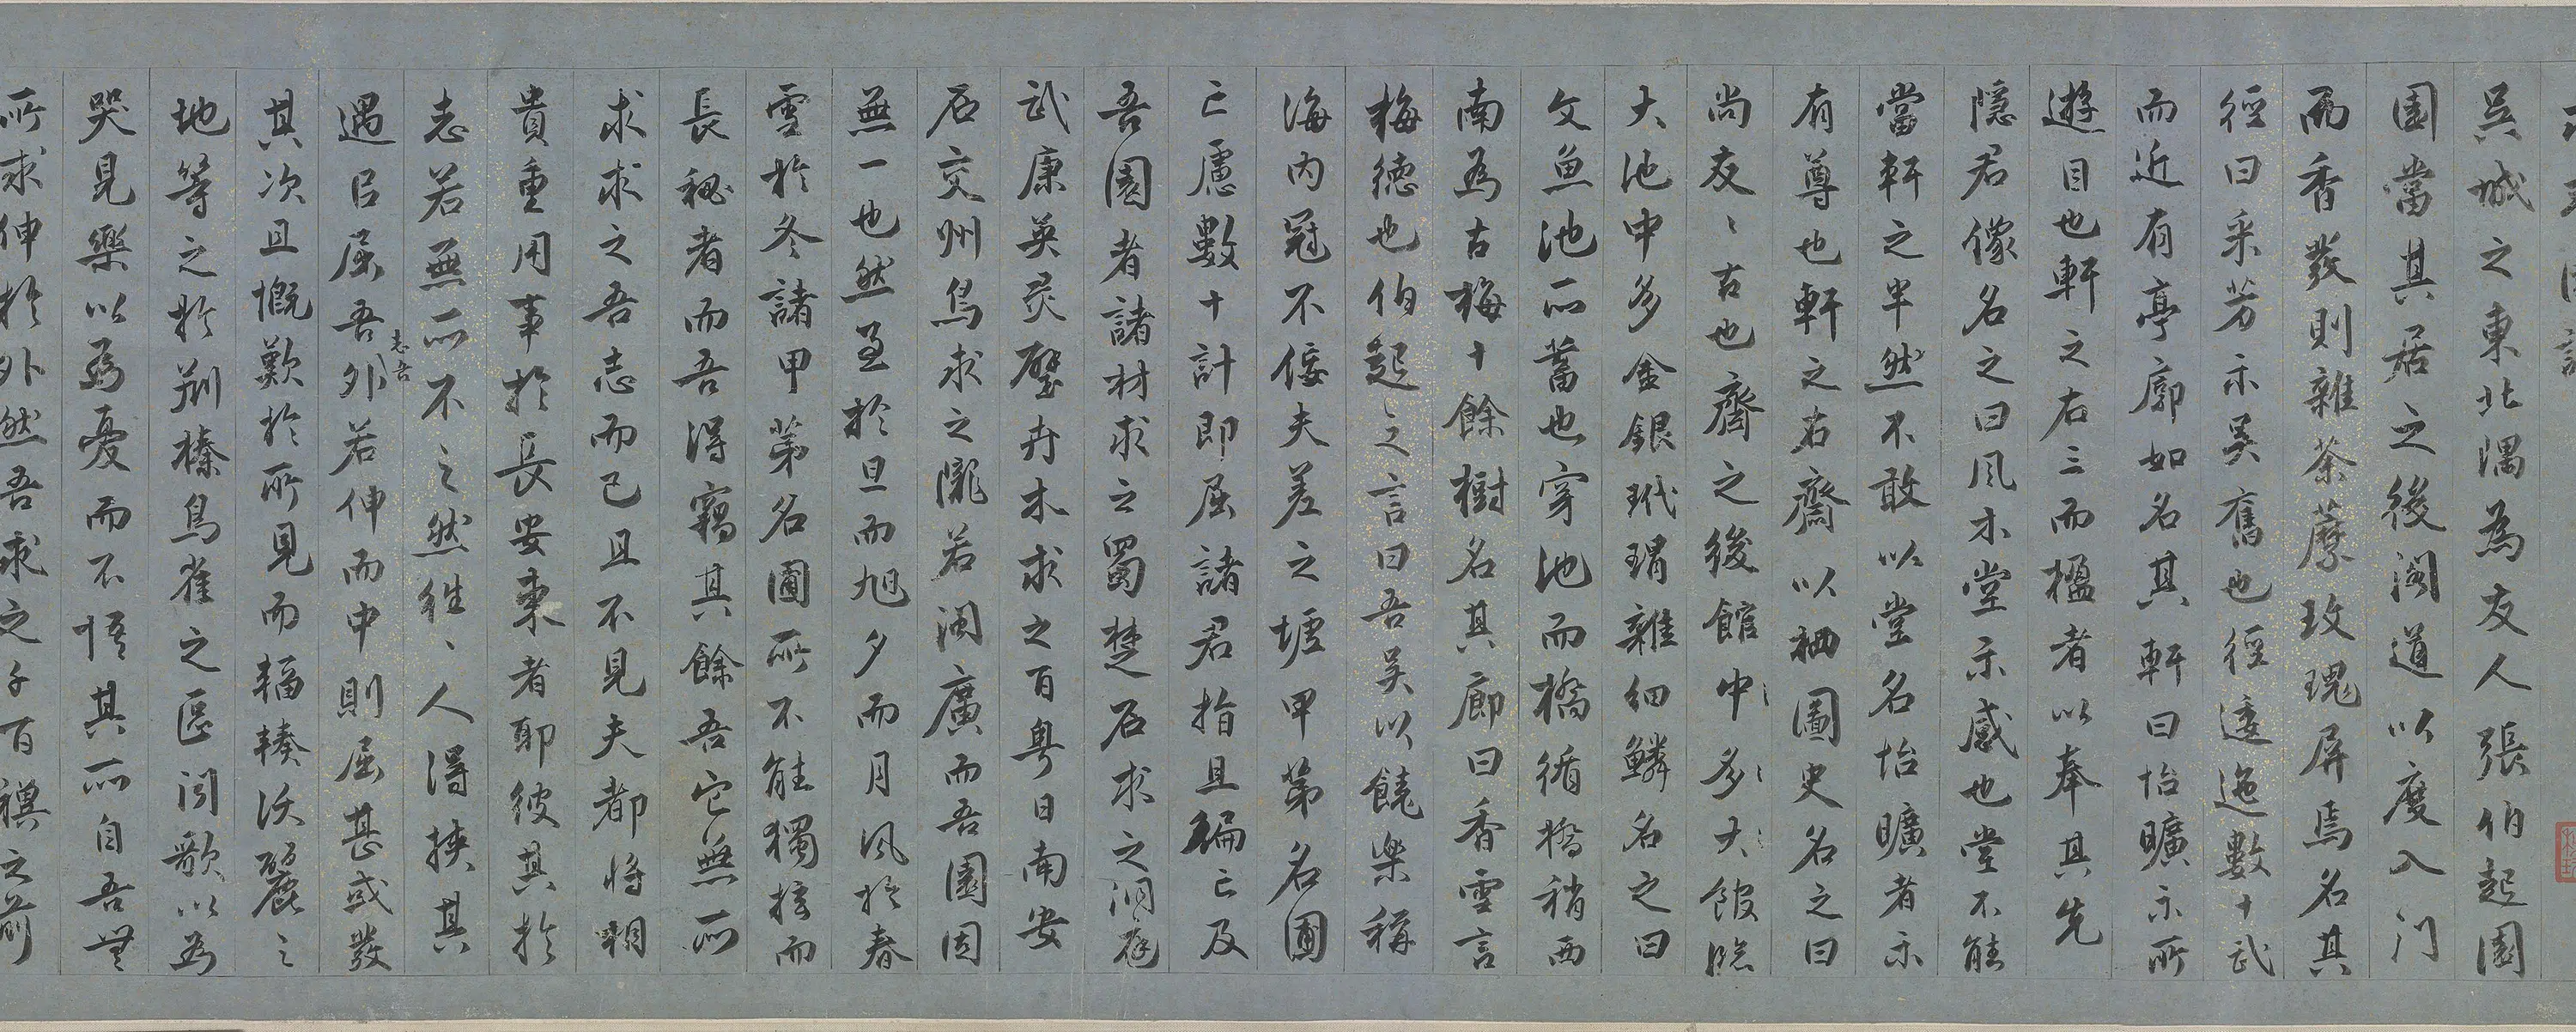 求志園記
吳城之東北隅為友人張伯起園
園當其居之後閣道以度入門
而香發則雜荼蘼玫瑰屏焉名其
徑曰采芳示吳舊也徑逶迤數十武
而近有亭廓如名其軒曰怡曠示所
遊目也軒之右三而楹者以奉其先
隱君像名之曰風木堂示感也堂不能
當軒之半然不敢以堂名怡曠者示
有尊也軒之右齋以栖圖史名之曰
尚友、古也齋之後館中多大館臨
大池中多金銀玳瑁雜細鱗名之曰
文魚池所蓄也穿池而橋循橋稍西
南為古梅十餘樹名其廊曰香雪言
梅德也伯起之言曰吾吳以饒樂稱
海內冠不佞夫差之墟甲第名圃
亡慮數十計即屈諸君指且徧亡及
吾園者諸材求之蜀楚石求之洞庭
武康英靈璧卉木求之百粵日南安
石交州鳥求之隴若閩廣而吾園固
無一也然至於旦而旭夕而月風於春
雪於冬諸甲第名圃所不能獨擅而
長秘者而吾得竊其餘吾它無所
求求之吾志而已且不見夫都將相
貴重用事於長安東者耶彼其於
志若無所不之然往、人得挾其
遇以屈吾志吾外若伸而中則屈甚或發
其次且慨歎於所見而輻輳沃麗之
地等之於荆榛鳥雀之區聞歌以為
哭見樂以為憂而不悟其所自吾無
所求伸於外然吾求之千百禩之前